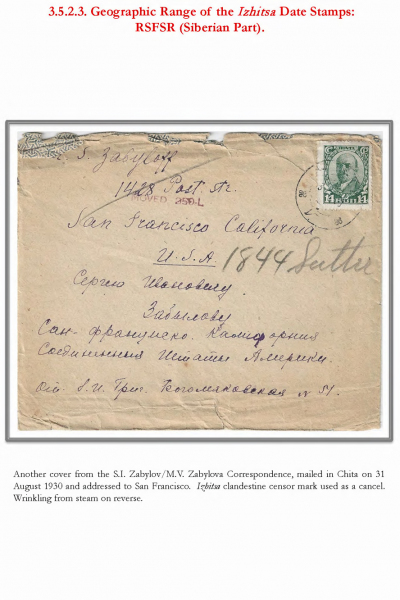 3.5.2.3. Geographic Range of the Izhitsa Date Stamps:
RSFSR (Siberian Part).
S. Zabyloff
1428 Post str.
MOVED 250-L
San Francisco California
U.S.A.
1844 Sutter
Сергею Ивановичу
Забылову
Сан-Франциско. Калифорния
Соединенныя Штаты Америки.
14 14
Another cover from the S.I. Zabylov/M.V. Zabylova Correspondence, mailed in Chita on 31
August 1930 and addressed to San Francisco. Izhitsa clandestine censor mark used as a cancel.
Wrinkling from steam on reverse.